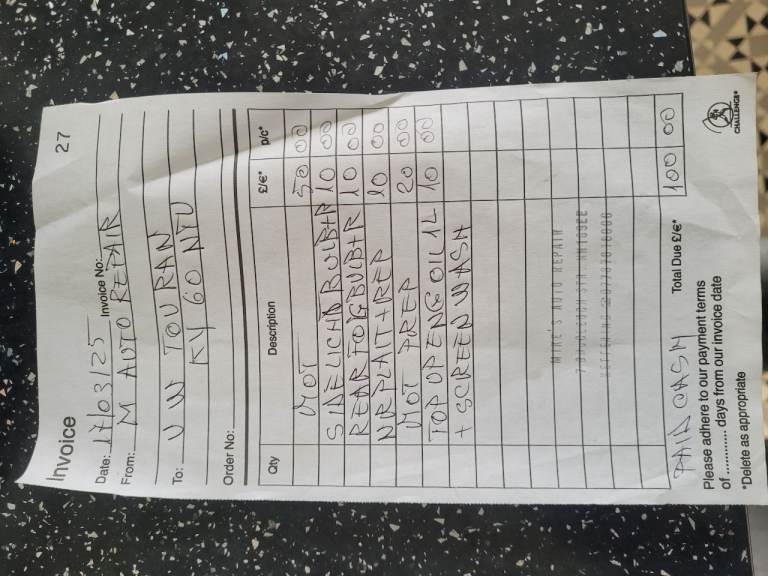 Invoice 27
Date: 17/03/25 Invoice No:
From: M AUTO REPAIR
To: VW TOURAN
KY60 NYU
Order No:
Qty Description £/€* p/c*
MOT 50 00
SIDE LIGHT BULB+R 10 00
REAR FOIG BULB+R 10 00
NR PLAIT+REP 10 00
MOT PREP 20 00
TOP UP ENG OIL 1L 10 00
+ SCREEN WASH
MIKE'S AUTO REPAIR
PAID CASH Total Due £/€* 100 00
Please adhere to our payment terms
of ............ days from our invoice date
*Delete as appropriate
CHALLENGE®